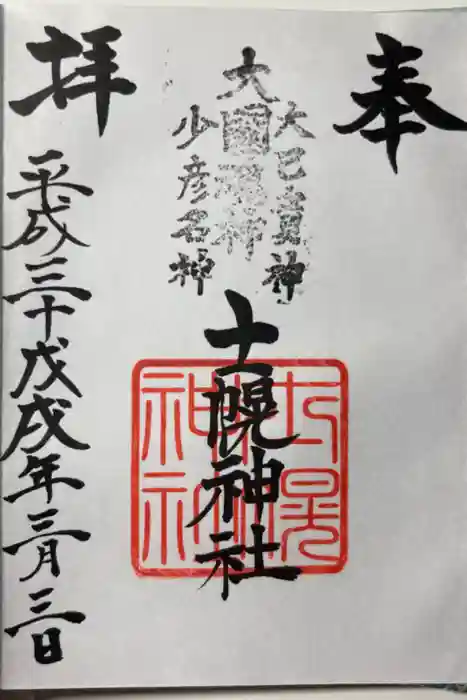 奉
大己貴神
大國魂神
少彦名神
士幌神社
士幌
神社
拝
平成三十戊戌年三月三日